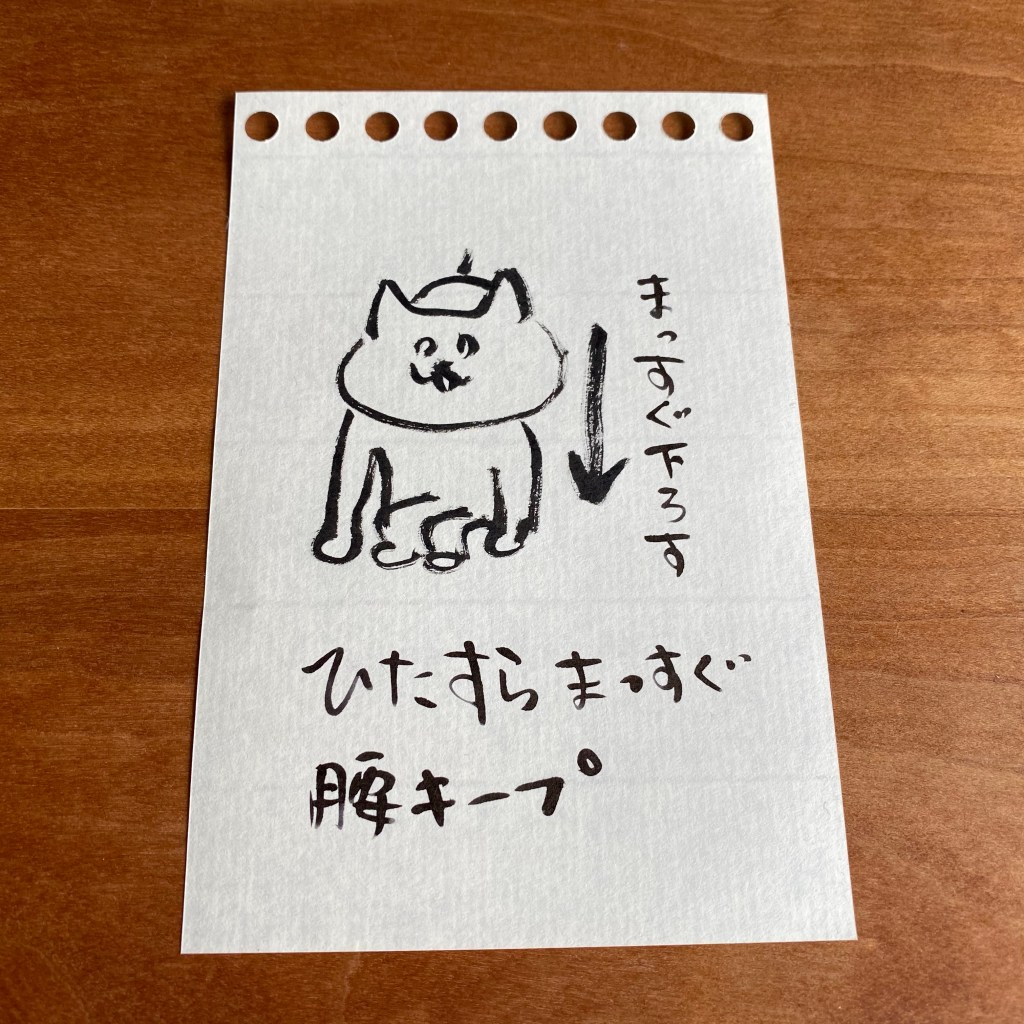 まっすぐ下ろす
ひたすらまっすぐ
腰キープ